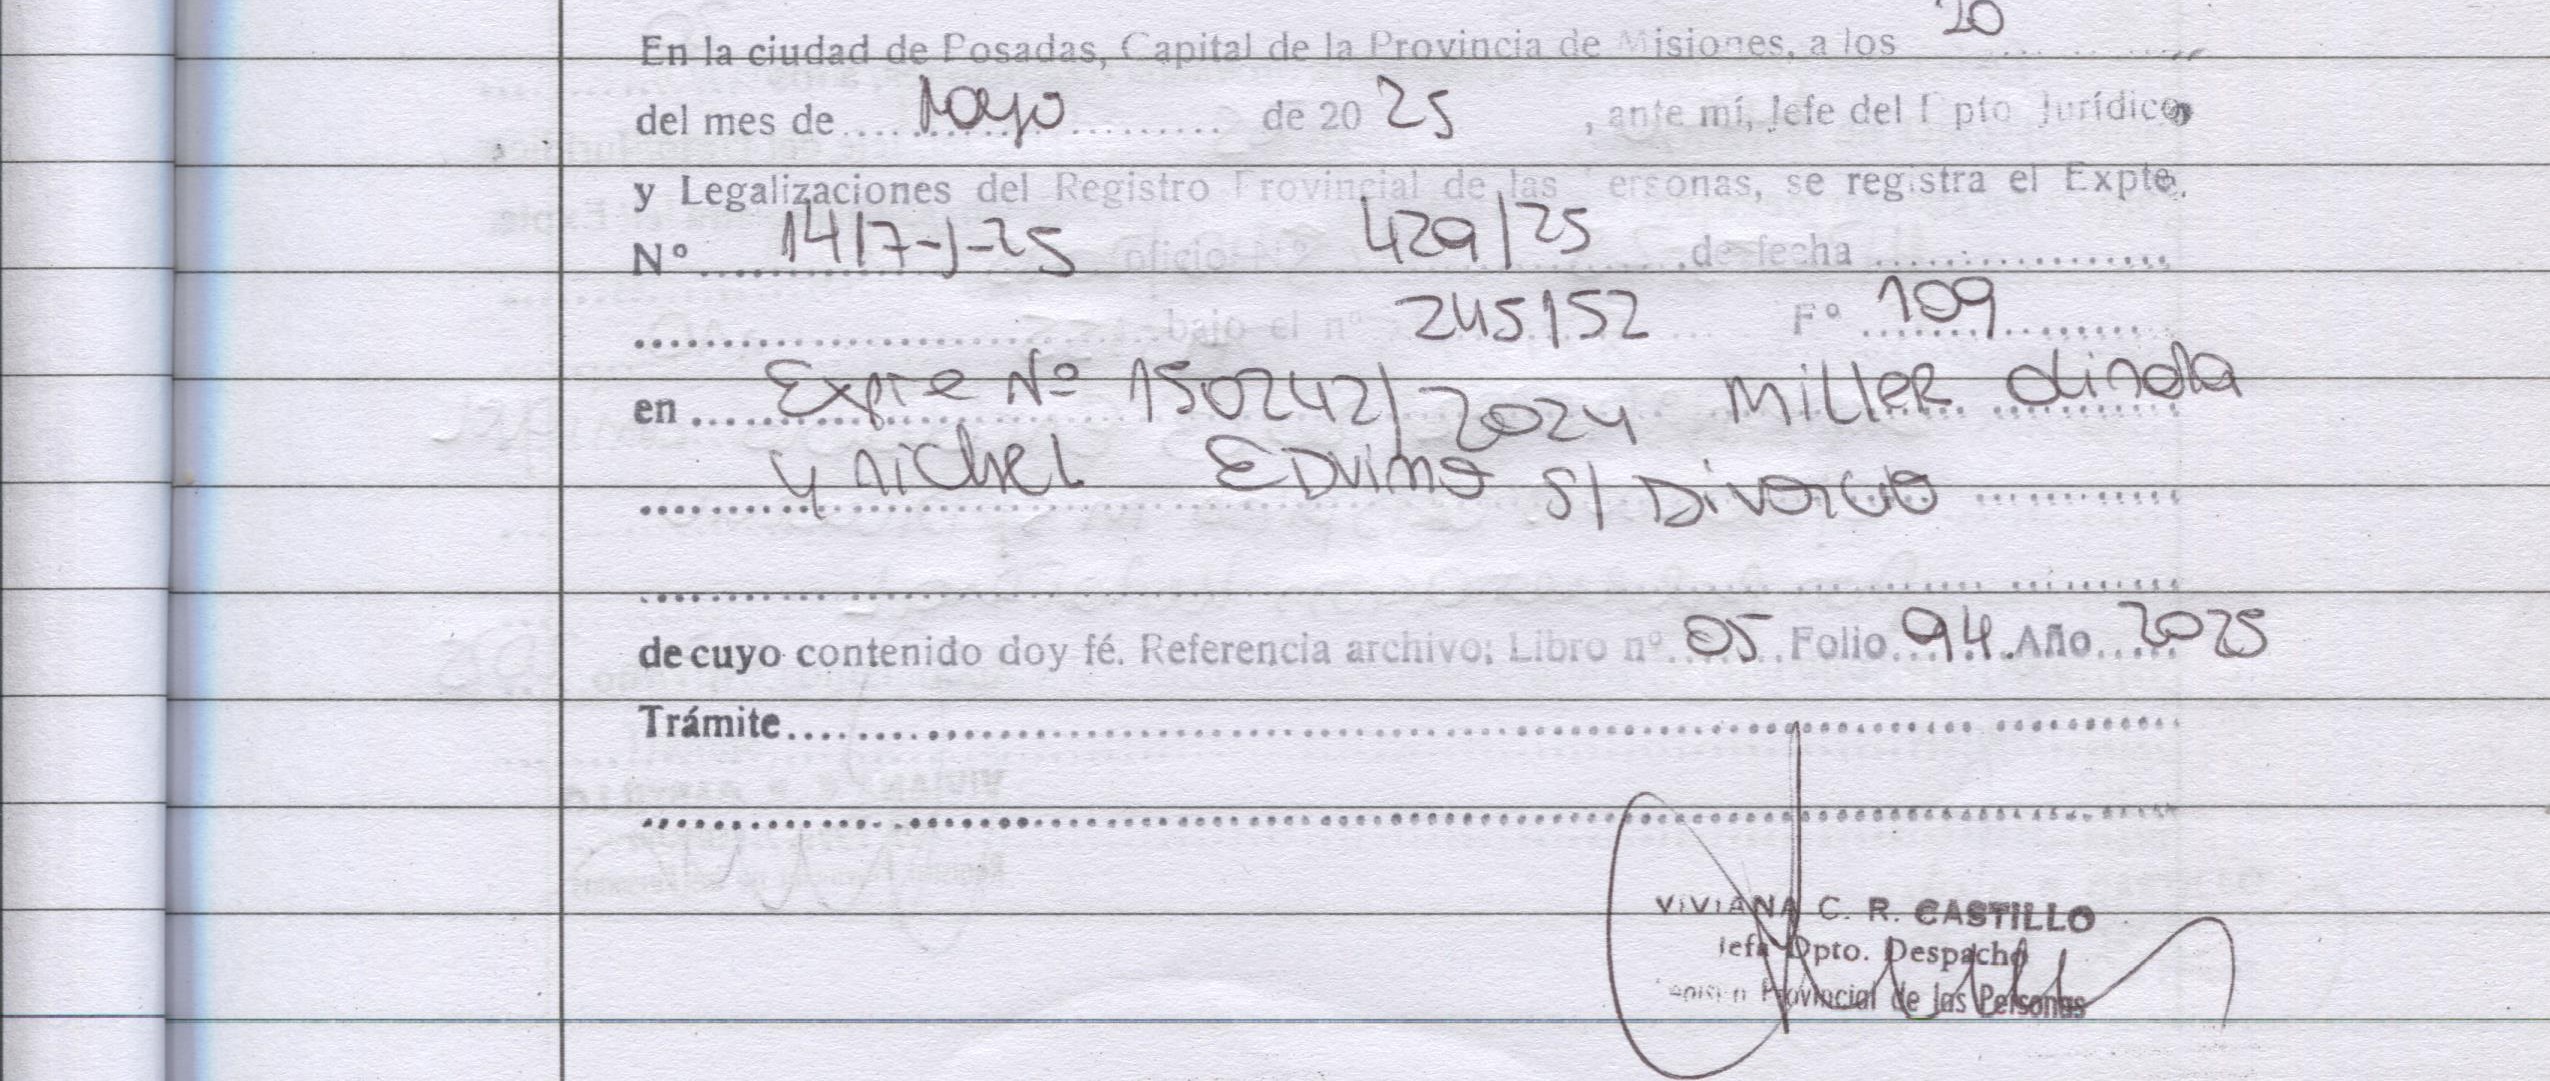 En la ciudad de Posadas, Capital de la Provincia de Misiones, a los 20
del mes de Mayo de 20 25, ante mí, Jefe del Dpto Jurídico,
y Legalizaciones del Registro Provincial de las Personas, se registra el Expte.
Nº 1417-J-25 oficio Nº 429/25 de fecha
bajo el nº 245152 Fº 109
en Expte Nº 150242/2024 Miller Olinda
y Michel Edvino s/ Divorcio
de cuyo contenido doy fé. Referencia archivo; Libro nº 05 Folio 94 Año 2025
Trámite
VIVIANA C. R. CASTILLO
Jefa Dpto. Despacho
Registro Provincial de las Personas